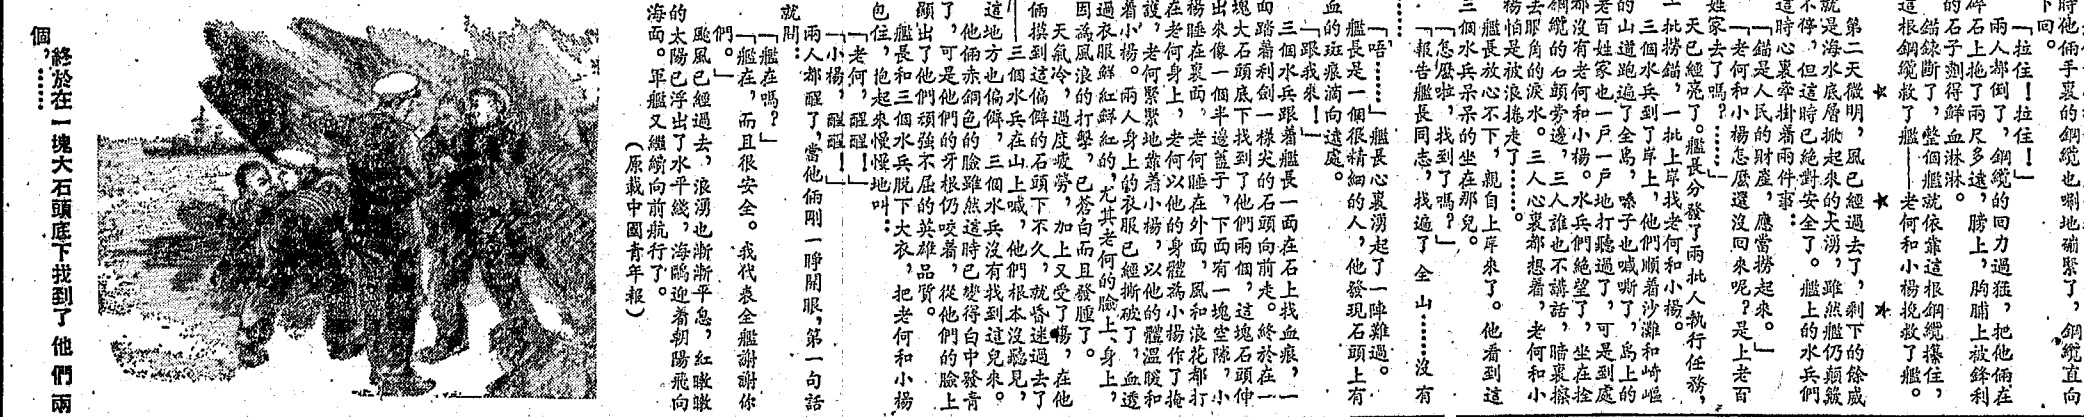 時他倆手裏的鋼纜也唰地繃緊了，鋼纜直向
下回。
「拉住！拉住！」
兩人都倒了，鋼纜的回力過猛，把他倆在
碎石上拖了兩尺多遠，膀上，胸脯上被鋒利
的石子劃得鮮血淋淋。
錨鍊斷了，整個艦就依靠這根鋼纜攥住，
這根鋼纜救了艦——老何和小楊挽救了艦。
★ ★ ★
第二天微明，風已經過去了，剩下的餘威
就是海水底層掀起來的大湧，雖然艦仍顛簸
不停，但這時已絶對安全了。艦上的水兵們
這時心裏牽掛着兩件事：
「錨是人民的財產，應當撈起來。」
「老何和小楊怎麼還沒回來呢？是上老百
姓家去了嗎？……」
天已經亮了。艦長分發了兩批人執行任務，
一批撈錨，一批上岸找老何和小楊。
三個水兵到了岸上，他們順着沙灘和崎嶇
的山道跑遍了全島，嗓子也喊嘶了，島上的
老百姓家也一戶一戶地打聽過了，可是到處
都沒有老何和小楊。水兵們絶望了，坐在拴
鋼纜的石頭旁邊，三人誰也不講話，暗裏擦
去眼角的淚水。三人心裏都想着，老何和小
楊怕是被浪捲走了……。
艦長放心不下，親自上岸來了。他看到這
三個水兵呆呆的坐在那兒。
「怎麼啦，找到了嗎？」
「報告艦長同志，找遍了全山……沒有
……」
「唔……」艦長心裏湧起了一陣難過。
艦長是一個很精細的人，他發現石頭上有
血的斑痕滴向遠處。
「跟我來！」
三個水兵跟着艦長一面在石上找血痕，一
面踏着利劍一樣尖的石頭向前走。終於在一
塊大石頭底下找到了他們兩個，這塊石頭伸
出來像一個半邊蓋子，下面有一塊空隙，小
楊睡在裏面，老何睡在外面，風和浪花都打
在老何身上，老何以他的身體為小楊作了掩
護，老何緊緊地靠着小楊，以他的體溫暖和
着小楊。兩人身上的衣服已經撕破了，血透
過衣服鮮紅鮮紅的，尤其老何的臉上、身上，
因為風浪的打擊，已蒼白而且發腫了。
天氣冷，過度疲勞，加上又受了傷，在他
倆摸到這偏僻的石頭下不久，就昏迷過去了
——三個水兵在山上喊，他們根本沒聽見，
這地方也偏僻，三個水兵沒有找到這兒來。
他倆赤銅色的臉雖然這時已變得白中發青
了，可是他們的牙根仍咬着，從他們的臉上
顯出了他們頑強不屈的英雄品質。
艦長和三個水兵脫下大衣，把老何和小楊
包住，抱起來慢慢地叫：
「老何，醒醒！」
「小楊，醒醒！」
兩人都醒了，當他倆剛一睜開眼，第一句話
就問：
「艦在嗎？」
「艦在，而且很安全。我代表全艦謝謝你
們。」
颱風已經過去，浪湧也漸漸平息，紅暾暾
的太陽已浮出了水平綫，海鷗迎着朝陽飛向
海面。軍艦又繼續向前航行了。
（原載中國青年報）
終於在一塊大石頭底下找到了他們兩
個，……